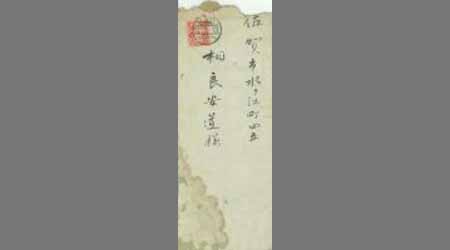 佐賀市水ヶ江町四五
相良安道様